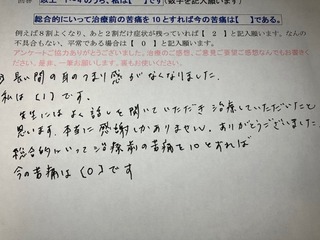 総合的にいって治療前の苦痛を10とすれば今の苦痛は【　】である。
例えば8割よくなり、あと2割だけ症状が残っていれば【 2 】と記入願います。なんの
不具合もない、平常である場合は【 0 】と記入願います。
アンケートご協力ありがとうございました。治療のご感想、ご意見ご要望ご感想なんでもお書き
ください。是非、一筆お願いします。薬もお使いください。
長い間の耳のつまり感がなくなりました。
私は〔1〕です。
先生にはよく話しを聞いていただき治療していただいたと
思います。本当に感謝しかありません。ありがとうございました
総合的にいって治療前の苦痛を10とすれば
今の苦痛は〔0〕です